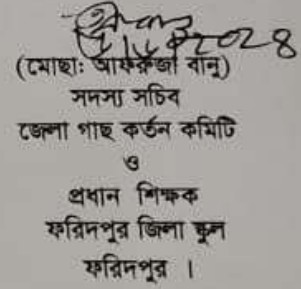 (মোছাঃ আফরুজা বানু)
সদস্য সচিব
জেলা গাছ কর্তন কমিটি
ও
প্রধান শিক্ষক
ফরিদপুর জিলা স্কুল
ফরিদপুর ।